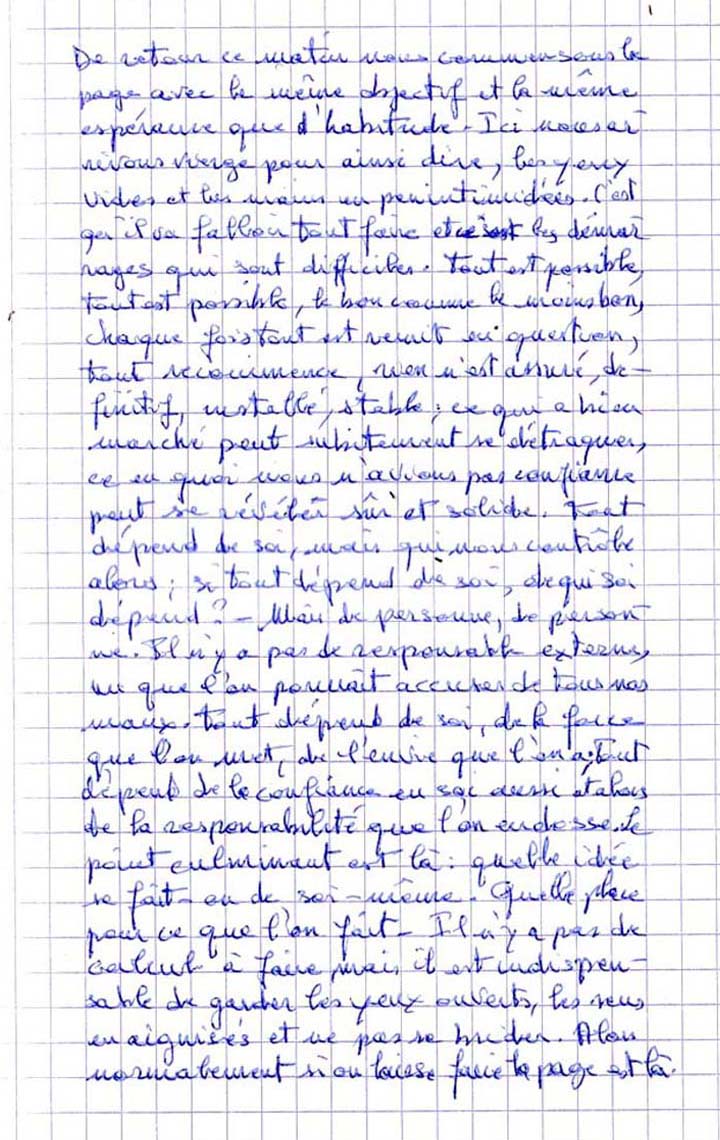 1
De retour ce matin nous commensons la
page avec le même objectif et la même
espérance que d'habitude. Ici nous ar
rivons vierge pour ainsi dire, les yeux
vides et les mains un peu intimidées. C'est
qu'il va falloir tout faire et ce sont les démar
rages qui sont difficiles. tout est possible,
tout est possible, le bon comme le moins bon,
chaque fois tout est remit en question,
tout recommence, rien n'est assuré, dé-
finitif, installé, stable; ce qui a bien
marché peut subitement se détraquer,
ce en quoi nous n'avions pas confiance
peut se révéler sûr et solide. Tout
dépend de soi, mais qui nous contrôle
alors; si tout dépend de soi, de qui soi
dépend? - Mais de personne, de person
ne. Il n'y a pas de responsable externe,
ni que l'on pourrait accuser de tous nos
maux. tout dépend de soi, de la force
que l'on met, de l'envie que l'on a; tout
dépend de la confiance en soi aussi et alors
de la responsabilité que l'on endosse. Le
point culminant est là: quelle idée
se fait-on de soi-même. Quelle place
pour ce que l'on fait- Il n'y a pas de
calcul à faire mais il est indispen-
sable de garder les yeux ouverts, les sens
en aiguisés et ne pas se brider. Alors
normalement si on laisse faire la page est là.